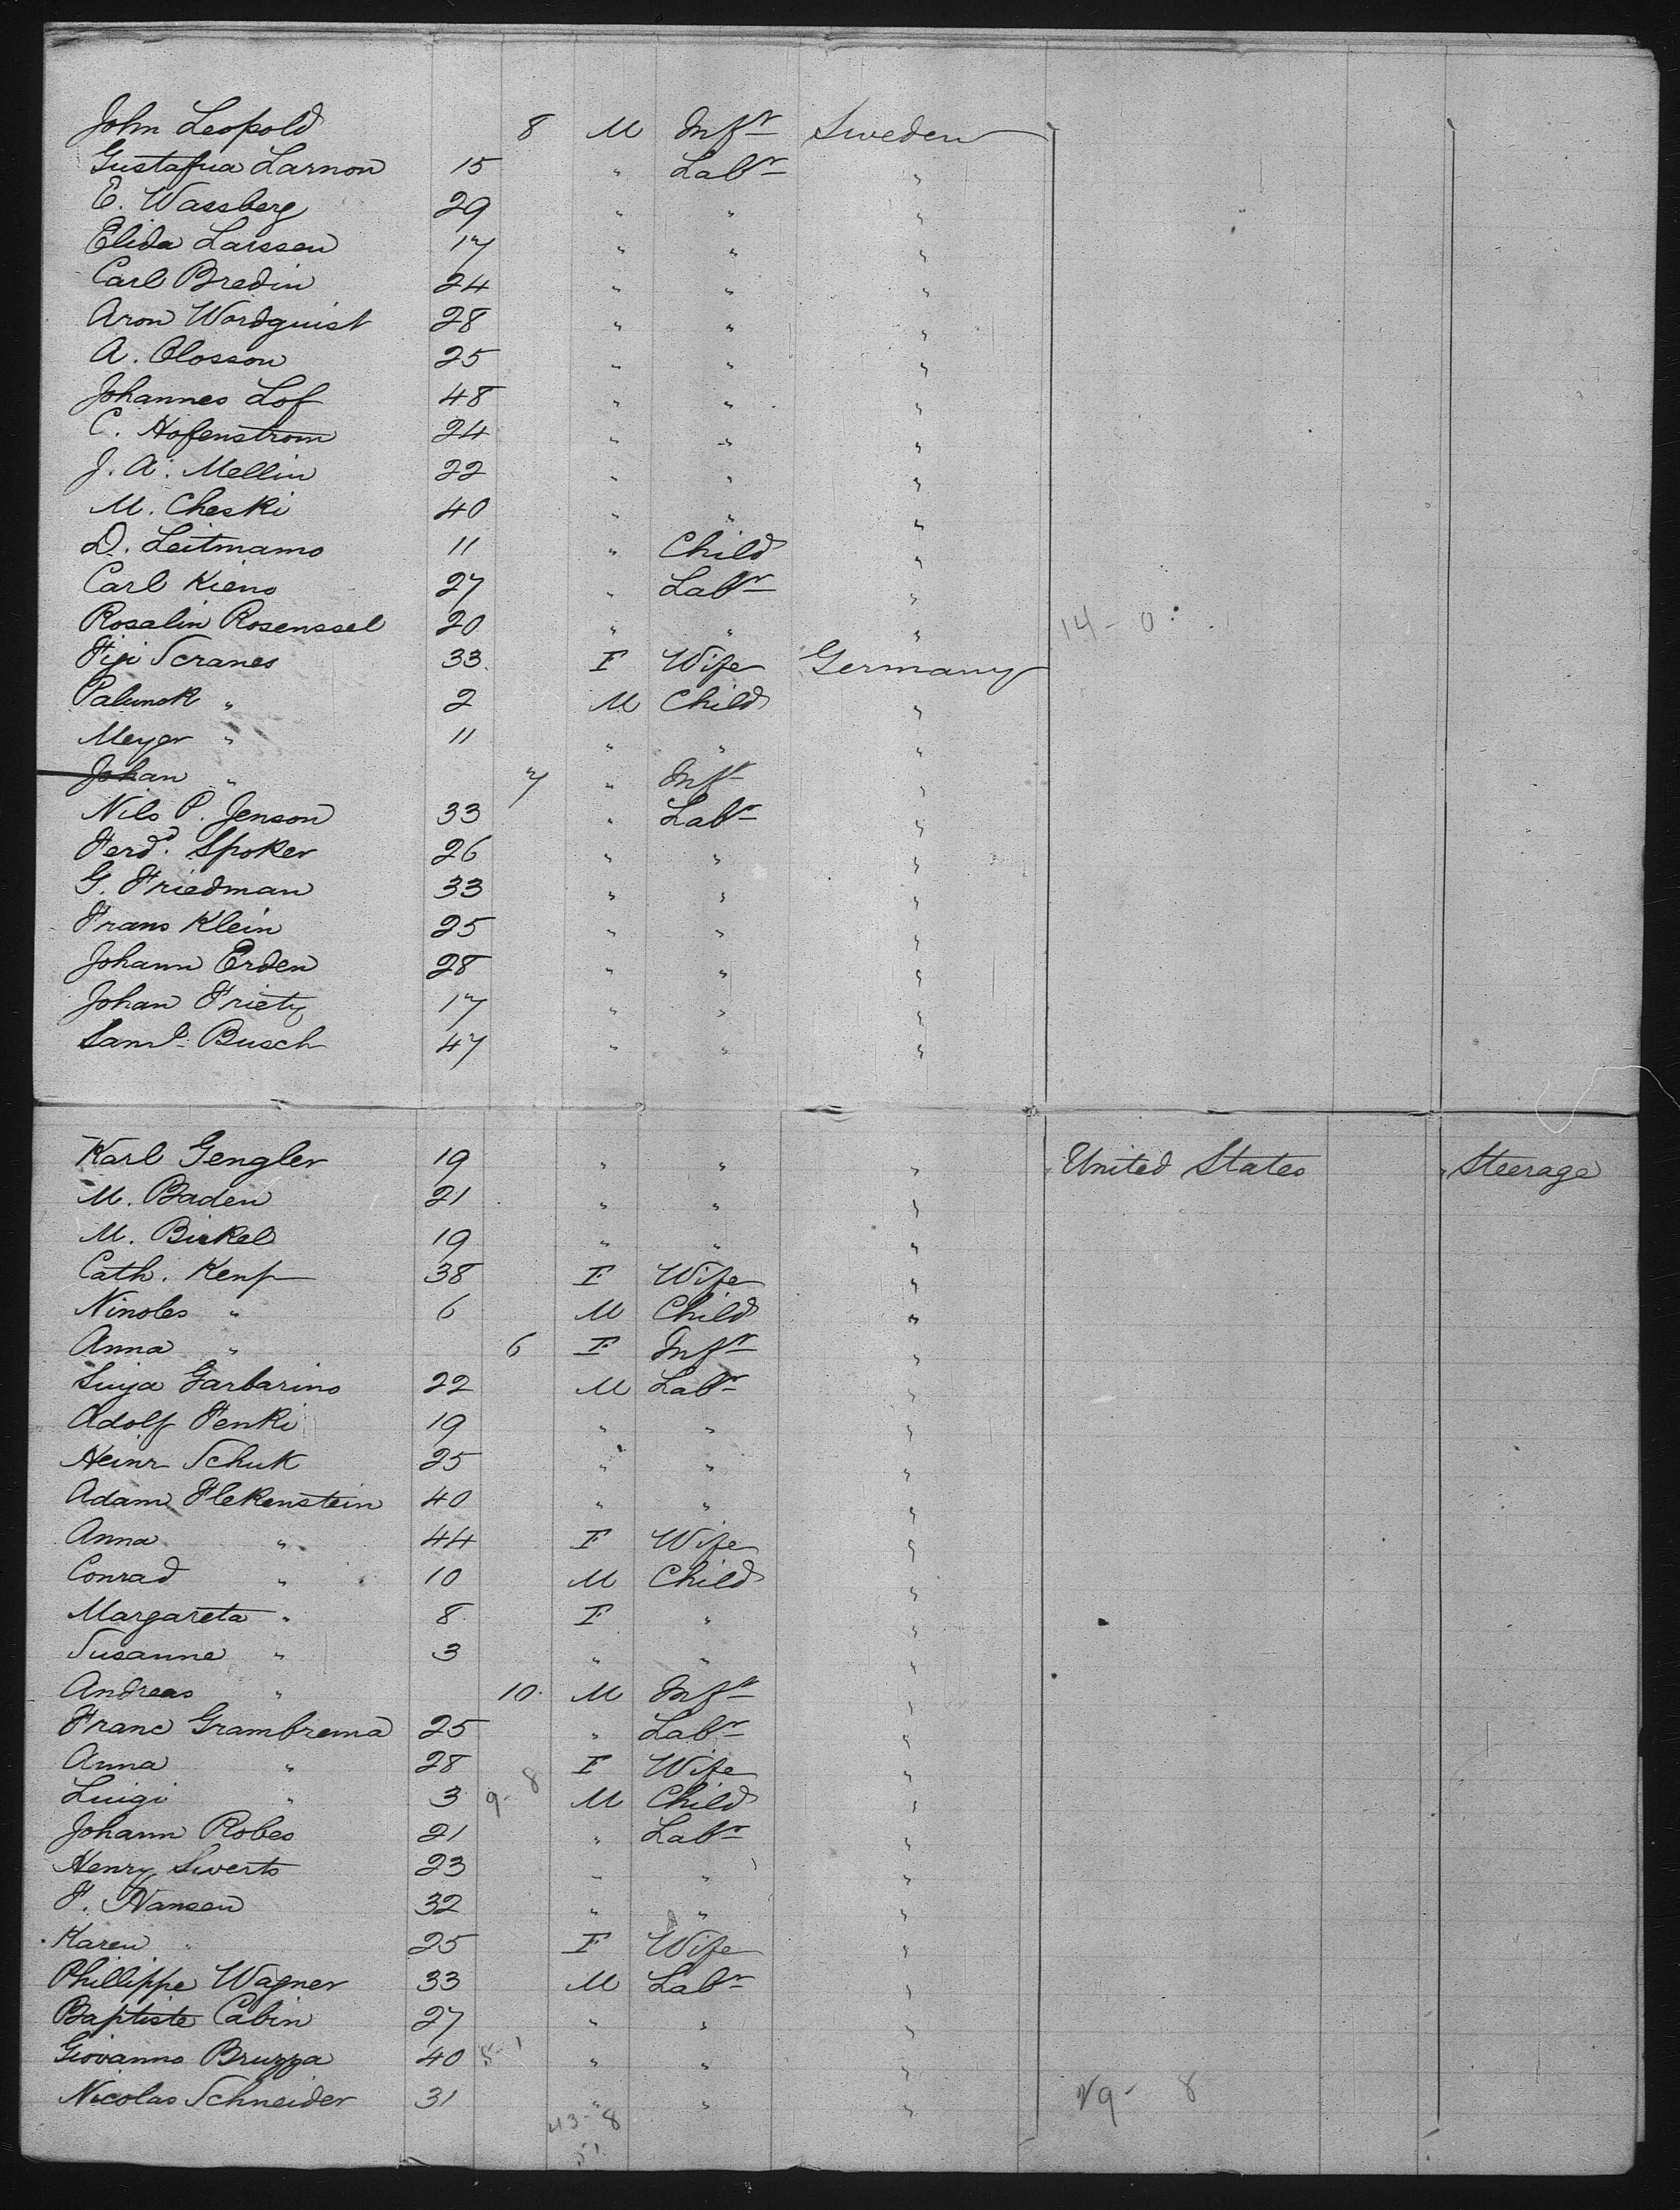 John Leopold 8 M Inft Sweden
Gustafua Larnon 15 " Labr "
E. Wassberg 29 " " "
Elida Larssen 17 " " "
Carl Bredin 24 " " "
Aron Wordquist 28 " " "
A. Olosson 25 " " "
Johannes Lof 48 " " "
C. Hofenstrom 24 " " "
J. A. Mellin 22 " " "
M. Cheski 40 " " "
D. Leitmamo 11 " Child "
Carl Kieno 27 " Labr "
Rosalin Rosenssel 20 " " " 14 - 0
Figi Scranes 33 F Wife Germany
Palunck " 2 M Child "
Meyer " 11 " " "
Johan " 7 " Inft "
Nils P. Jenson 33 " Labr "
Ferd. Spoker 26 " " "
G. Friedman 33 " " "
Frans Klein 25 " " "
Johann Erden 28 " " "
Johan Friety 17 " " "
Saml. Busch 47 " " "
Karl Gengler 19 " " " United States Steerage
M. Baden 21 " " "
M. Birkel 19 " " "
Cath. Kenp 38 F Wife "
Ninoles " 6 M Child "
Anna " 6 F Inft "
Luija Garbarino 22 M Labr "
Adolf Fenki 19 " " "
Heinr Schuk 25 " " "
Adam Flekenstein 40 " " "
Anna " 44 F Wife "
Conrad " 10 M Child "
Margareta " 8 F " "
Susanne " 3 " " "
Andreas " 10 M Inft "
Franc Grambrema 25 " Labr "
Anna " 28 F Wife "
Luigi " 3 9 - 8 M Child "
Johann Robes 21 " Labr "
Henry Swerts 23 " " "
F. Hansen 32 " " "
Karen " 25 F Wife "
Phillippe Wagner 33 M Labr "
Baptiste Cabin 27 " " "
Giovanno Bruzza 40 5-1 " " "
Nicolas Schneider 31 " " " 29 - 8
43 - 8
51